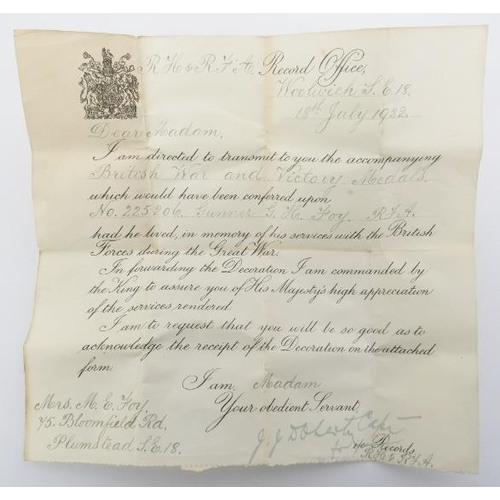 R H & R F A Record Office,
Woolwich S.E.18.
18th July 1922
Dear Madam,
I am directed to transmit to you the accompanying
British War and Victory Medals,
which would have been conferred upon
No. 225206 Gunner G. H. Foy, R.F.A.
had he lived, in memory of his services with the British
Forces during the Great War.
In forwarding the Decoration I am commanded by
the King to assure you of His Majesty's high appreciation
of the services rendered.
I am to request that you will be so good as to
acknowledge the receipt of the Decoration on the attached
form.
I am, Madam
Your obedient Servant,
Mrs. M. E. Foy
75 Bloomfield Rd,
Plumstead S.E.18.
J J Doherty Capt
Records
R.H & R.F.A.